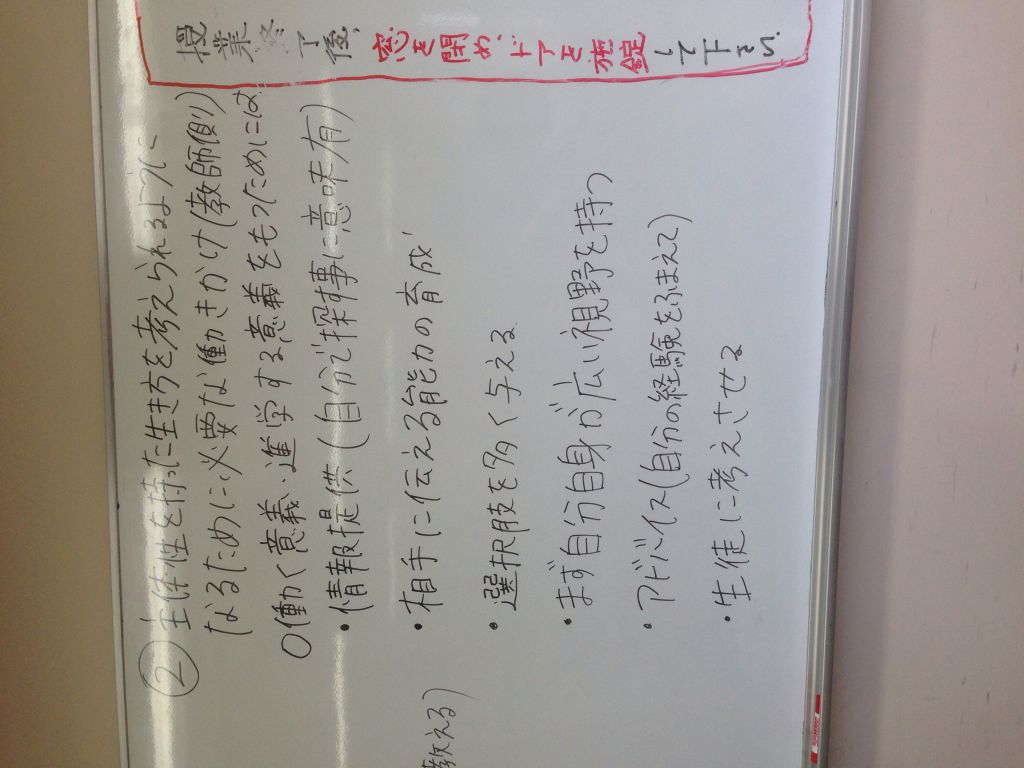 授業終了後、窓を閉め、ドアを施錠して下さい
② 主体性を持った生き方を考えられるように
なるために必要な働きかけ(教師側)
○働く意義・進学する意義をもつためには
・情報提供(自分で探す事に意味有)
・相手に伝える能力の育成
・選択肢を多く与える
・まず自分自身が広い視野を持つ
・アドバイス(自分の経験をふまえて)
・生徒に考えさせる
教える)